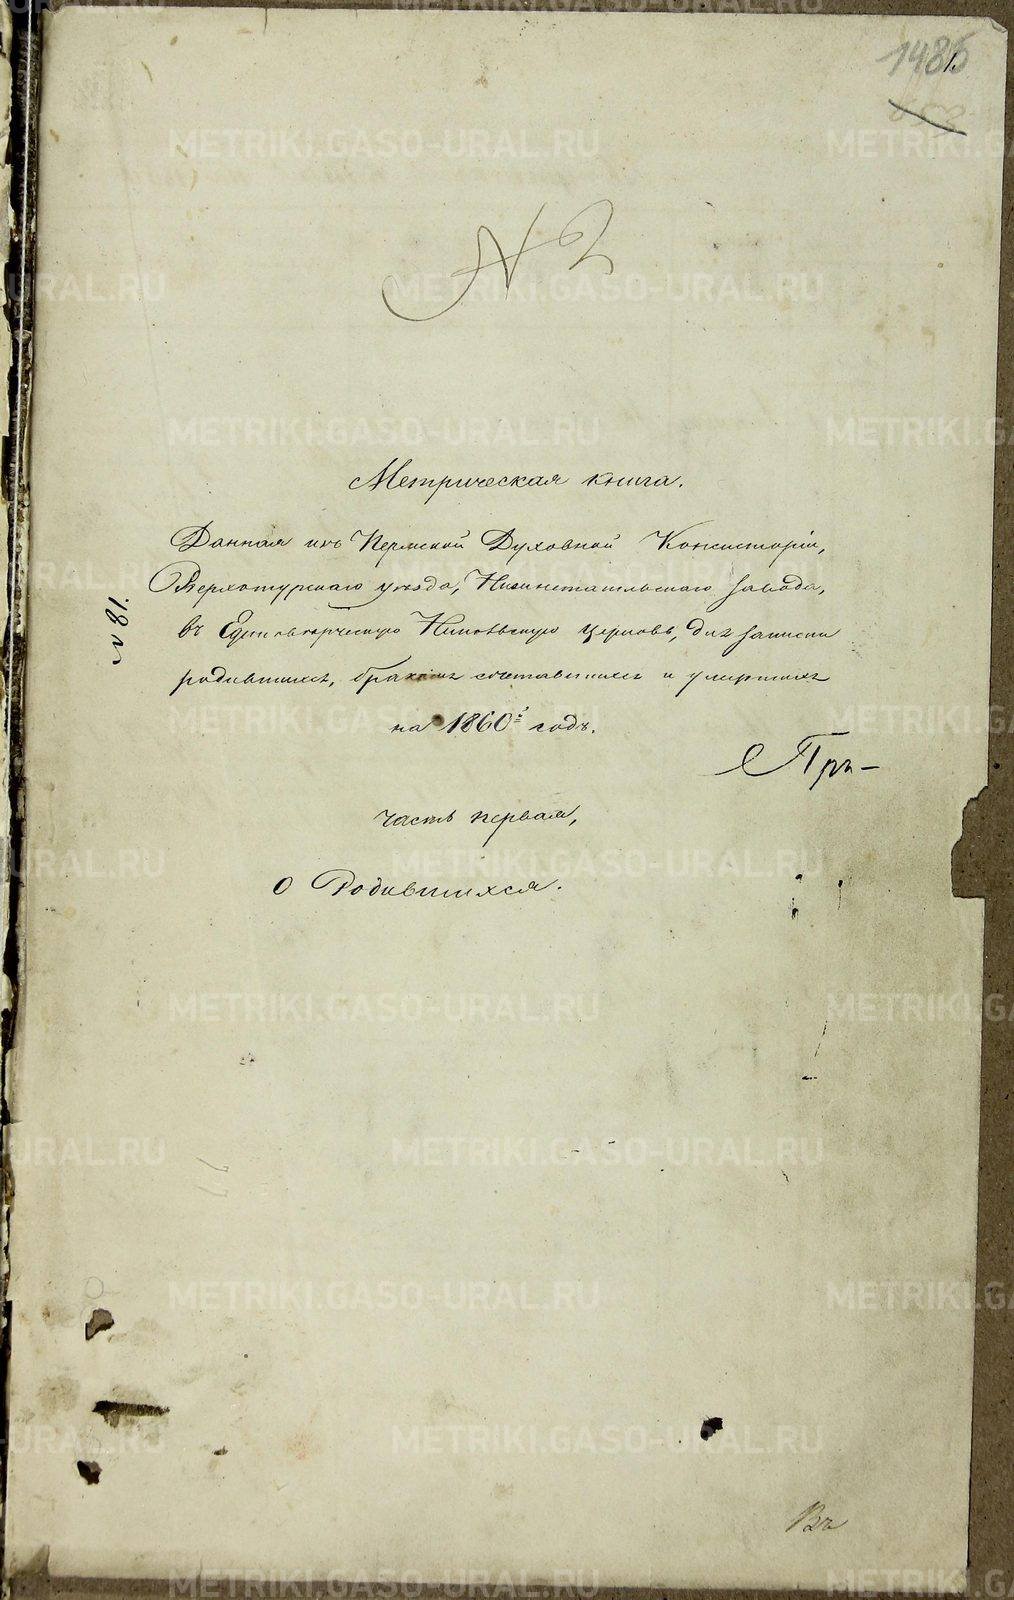 1486
N 2
Метрическая книга.
Данная изъ Пермской Духовной Консисторіи,
Верхотурскаго уѣзда, Нижнетагильскаго завода,
въ Единоверческую Никольскую церковь, для записки
родившихся, бракомъ сочетавшихся и умершихъ
на 1860й годъ.
№ 81.
Часть первая,
о Родившихся.
METRIKI.GASO-URAL.RU